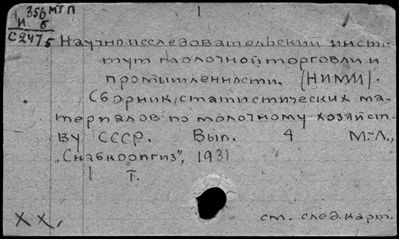 356 МТП
И. б
С2475
1
Научно-исследовательский инсти-
тут молочной торговли и
промышленности. (НИМИ).
Сборник статистических ма-
териалов по молочному хозяйст-
ву СССР. Вып. 4 М.-Л.,
„Снабкоопгиз", 1931
1 т.
XX,
ст. след. карт.